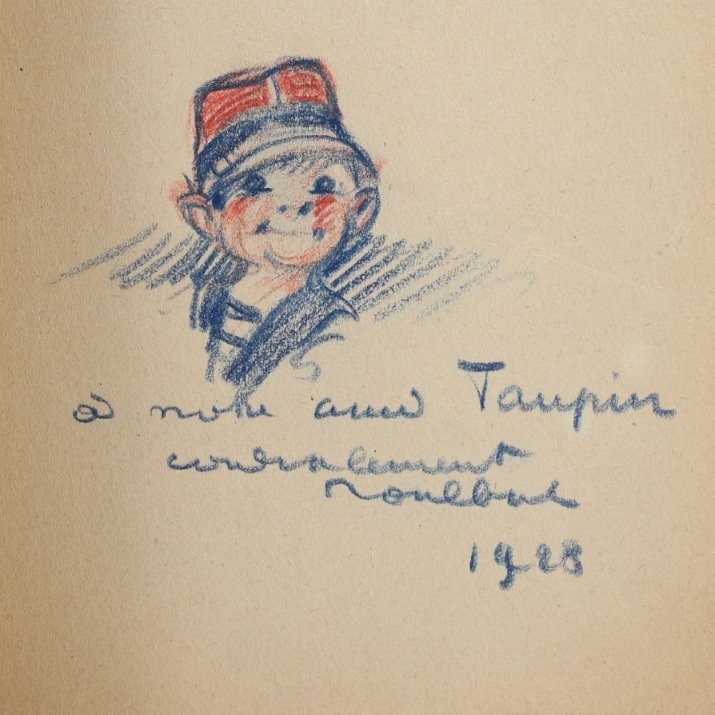 à notre ami Taupin
cordialement
Poulbot
1923